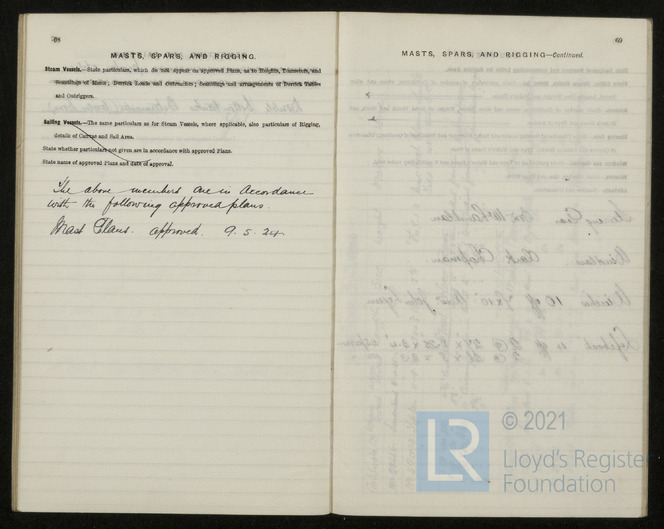 68
MASTS, SPARS, AND RIGGING.
Steam Vessels.—State particulars, which do not appear on approved Plans, as to Heights, Diameters, and
Scantlings of Masts; Derrick Loads and Outreaches; Scantlings and arrangements of Derrick Tables
and Outriggers.
Sailing Vessels.—The same particulars as for Steam Vessels, where applicable, also particulars of Rigging,
details of Canvas and Sail Area.
State whether particulars not given are in accordance with approved Plans.
State name of approved Plans and date of approval.
The above members are in accordance
with the following approved plans.
Mast Plans. approved. 9.5.24
69
MASTS, SPARS, AND RIGGING—Continued.
LR
© 2021
Lloyd's Register
Foundation